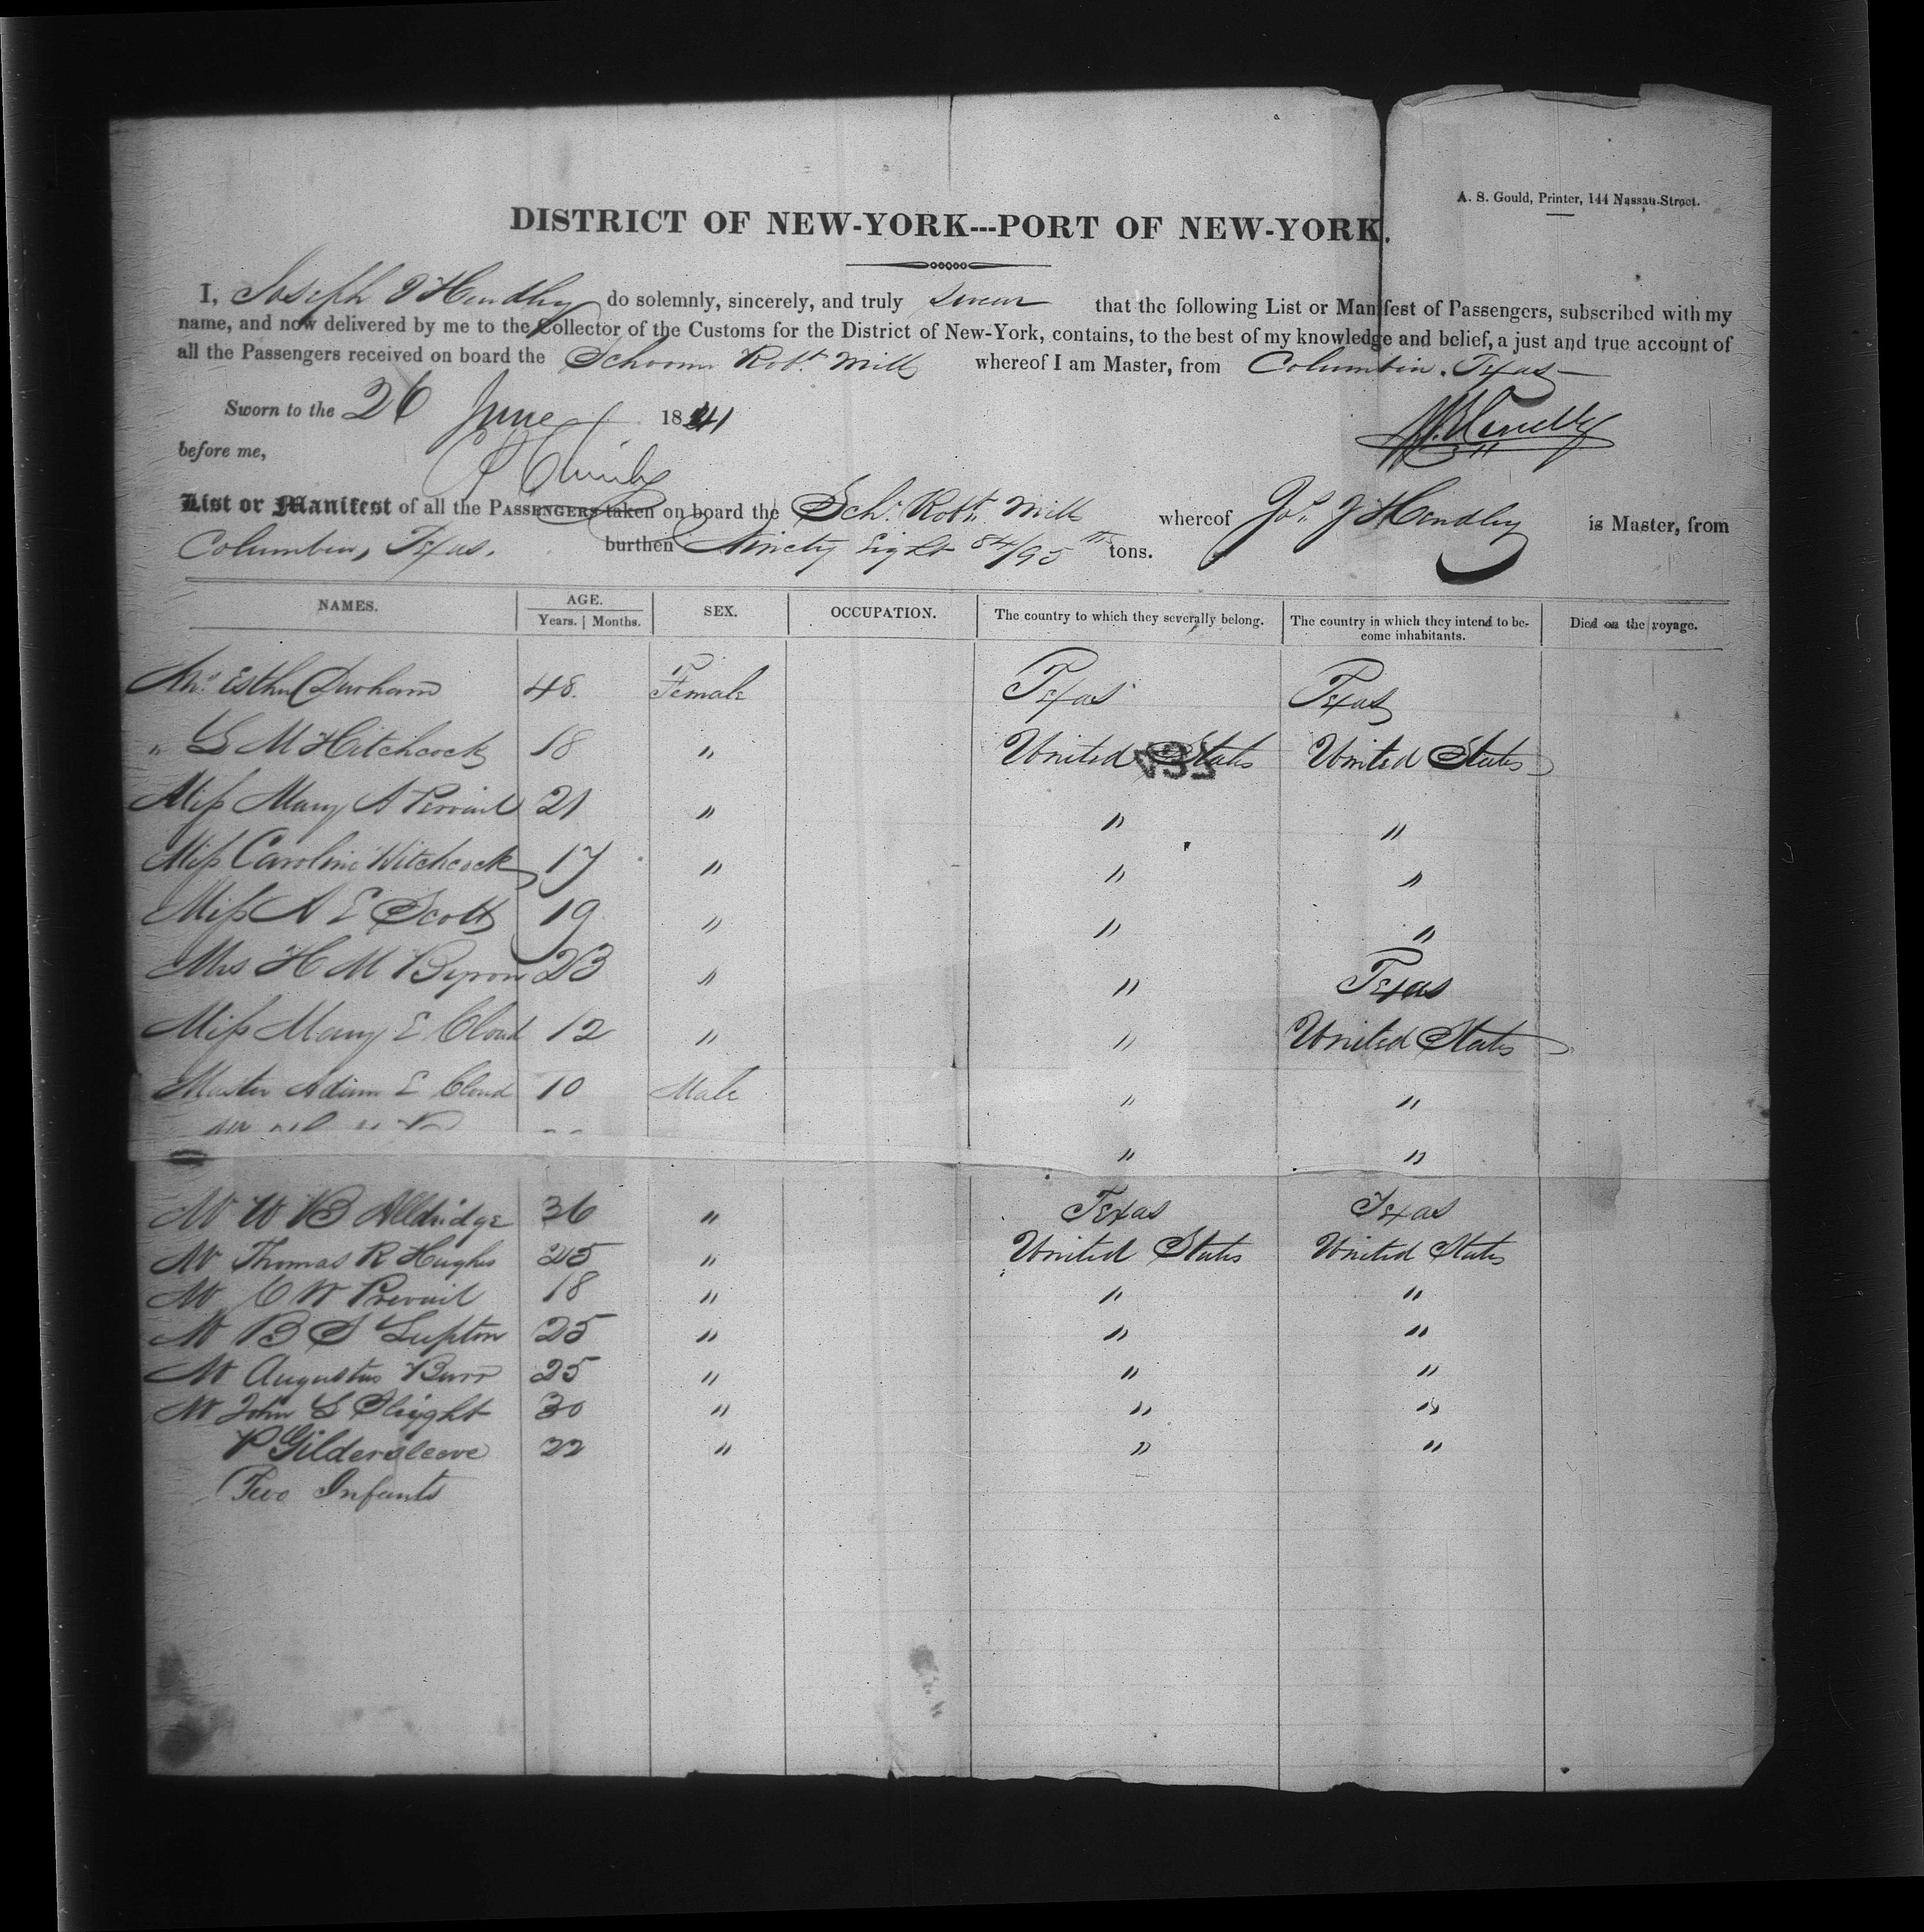 A. S. Gould, Printer, 144 Nassau-Street.
DISTRICT OF NEW-YORK---PORT OF NEW-YORK.
I, Joseph J Hendley do solemnly, sincerely, and truly swear that the following List or Manifest of Passengers, subscribed with my
name, and now delivered by me to the Collector of the Customs for the District of New-York, contains, to the best of my knowledge and belief, a just and true account of
all the Passengers received on board the Schooner Robt. Mills whereof I am Master, from Columbia, Texas
Sworn to the 26 June 1841
before me,
List or Manifest of all the PASSENGERS taken on board the Schr. Robt. Mills whereof Jos. J Hendley is Master, from
Columbia, Texas. burthen Ninety Eight 84/95 ths tons.
NAMES. AGE. SEX. OCCUPATION. The country to which they severally belong. The country in which they intend to be- Died on the voyage.
Years. | Months. come inhabitants.
Mrs Esther Durham 48. Female Texas Texas
" L M Hitchcock 18 " United States United States
Miss Mary A 21 " " "
Miss Caroline Hitchcock 17 " " "
Miss A E Scott 19 " " "
Mrs H M Byrom 23 " " Texas
Miss Mary E Cloud 12 " " United States
Master Adam E Cloud 10 Male " "
" "
Mr W B Alldridge 36 " Texas Texas
Mr Thomas R Hughes 25 " United States United States
Mr C W Prevail 18 " " "
Mr B S Lupton 25 " " "
Mr Augustus Burr 25 " " "
Mr John L Sleight 30 " " "
P Gildersleeve 22 " " "
Two Infants